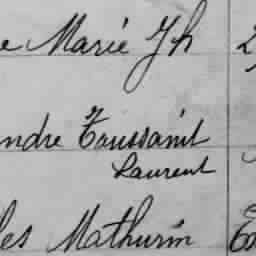 e Marie Jh
ndre Toussaint
Laurent
les Mathurin